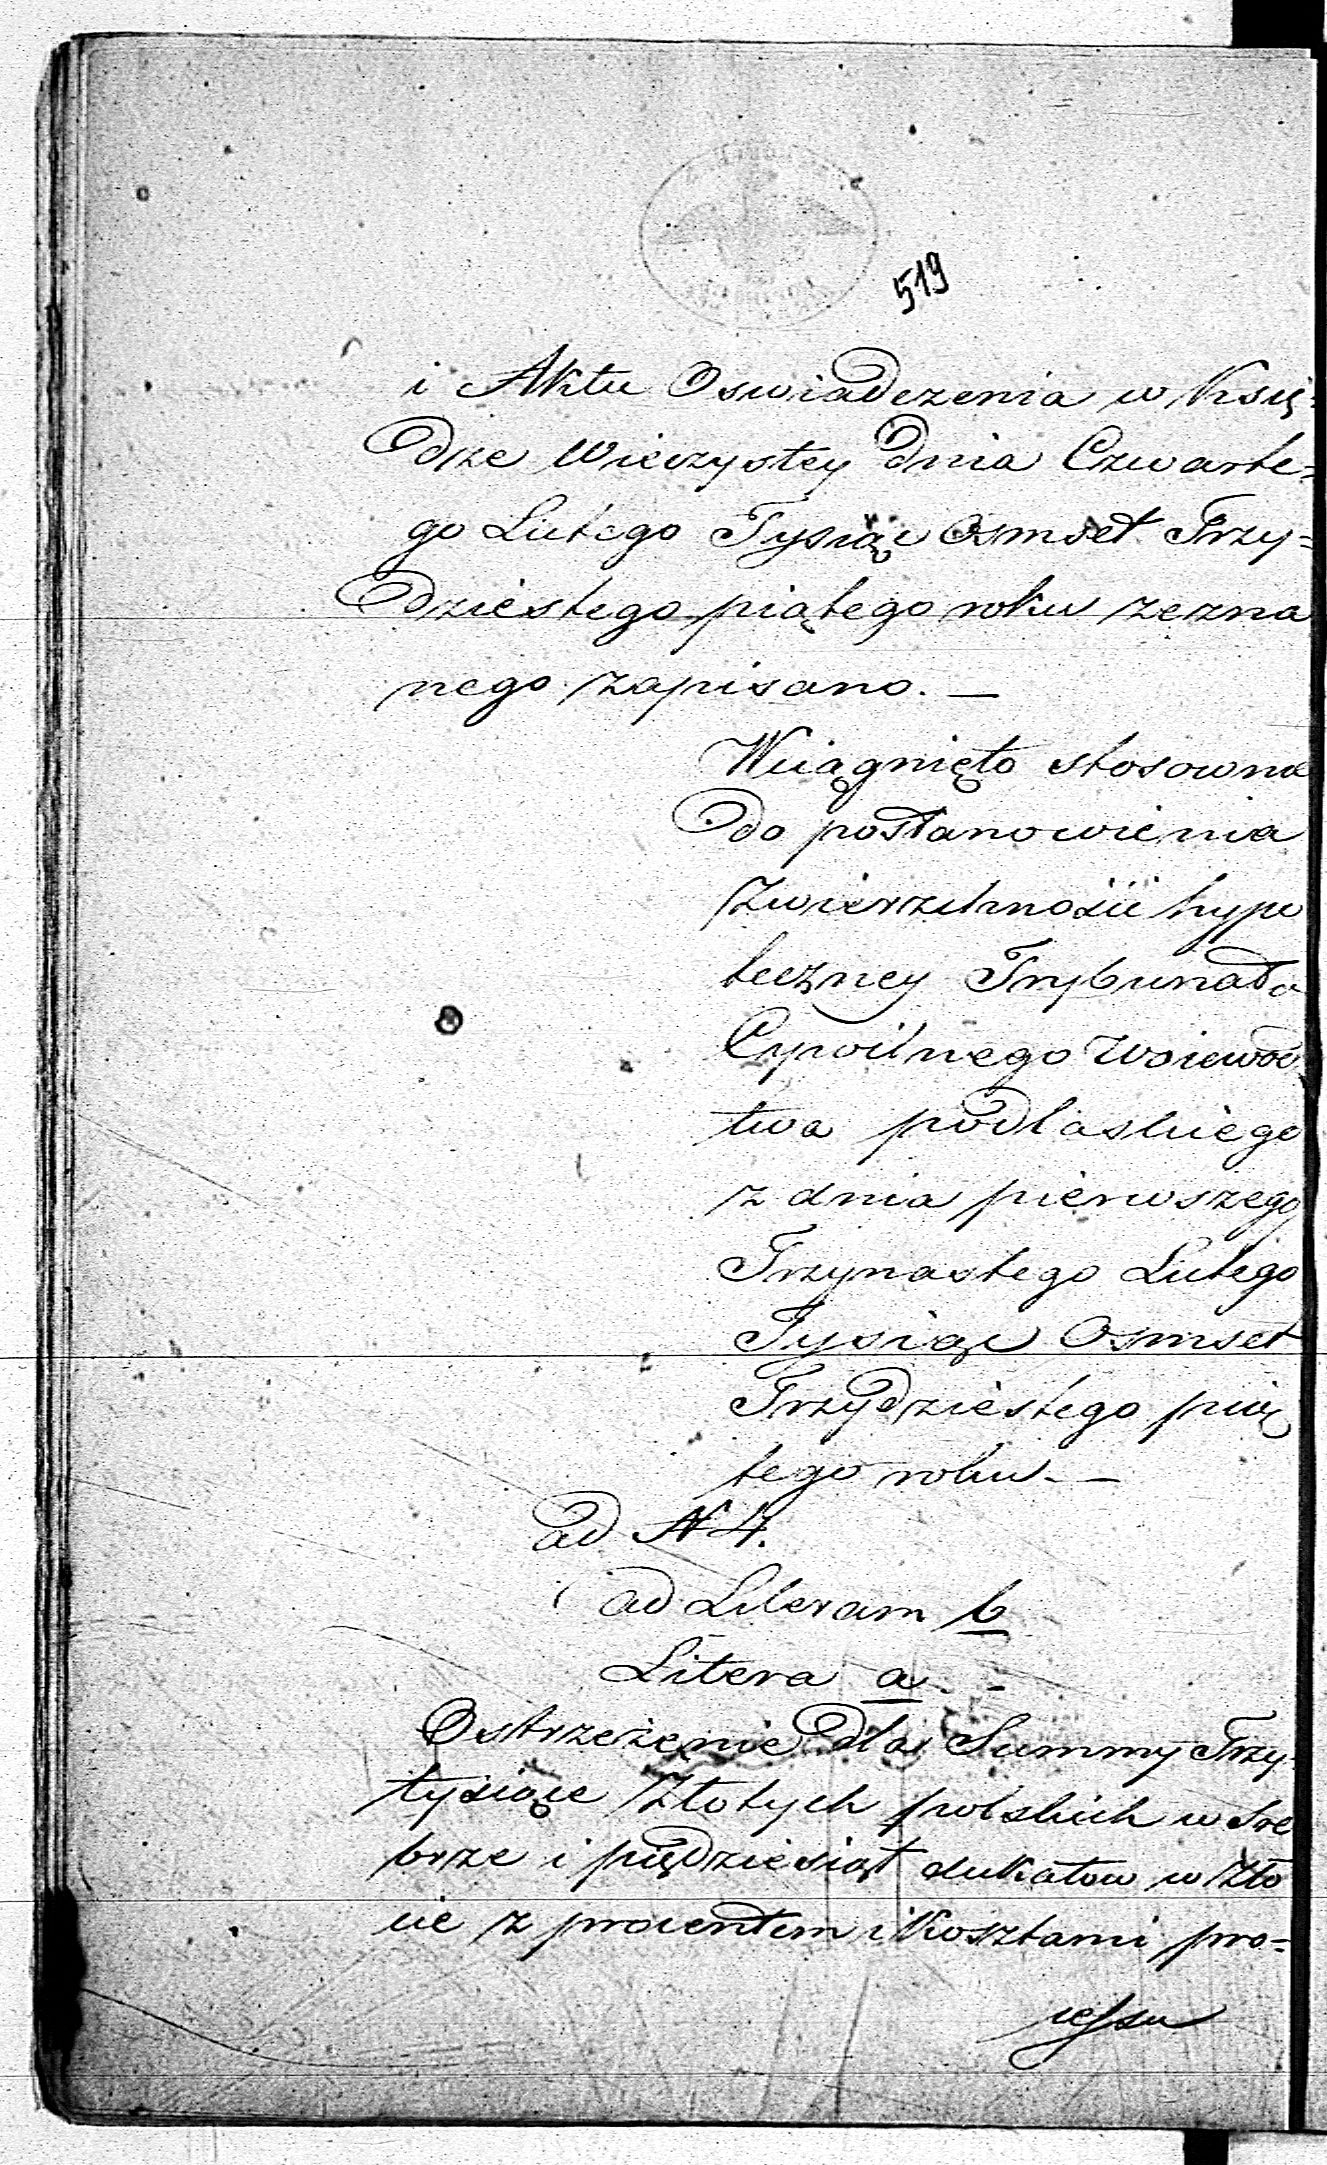 519
i Aktu Oswiadczenia w Księ=
dze Wieczystey dnia Czwarte=
go Lutego Tysiąc Osmset Trzy=
dziestego piątego roku zezna
nego zapisano. —
Wciągnięto stosownie
do postanowienia
Zwierzchności hypo
teczney Trybunału
Cywilnego Woiewódz
twa podlaskiego
z dnia pierwszego
Trzynastego Lutego
Tysiąc Osmset
Trzydziestego pią
tego roku. —
ad N 4.
ad Literam b
Litera a. -
Ostrzeżenie dla Summy Trzy
tysiące Złotych polskich w Sre
brze i pięćdziesiąt dukatow w Zło
cie z procentem i Kosztami pro=
cessu